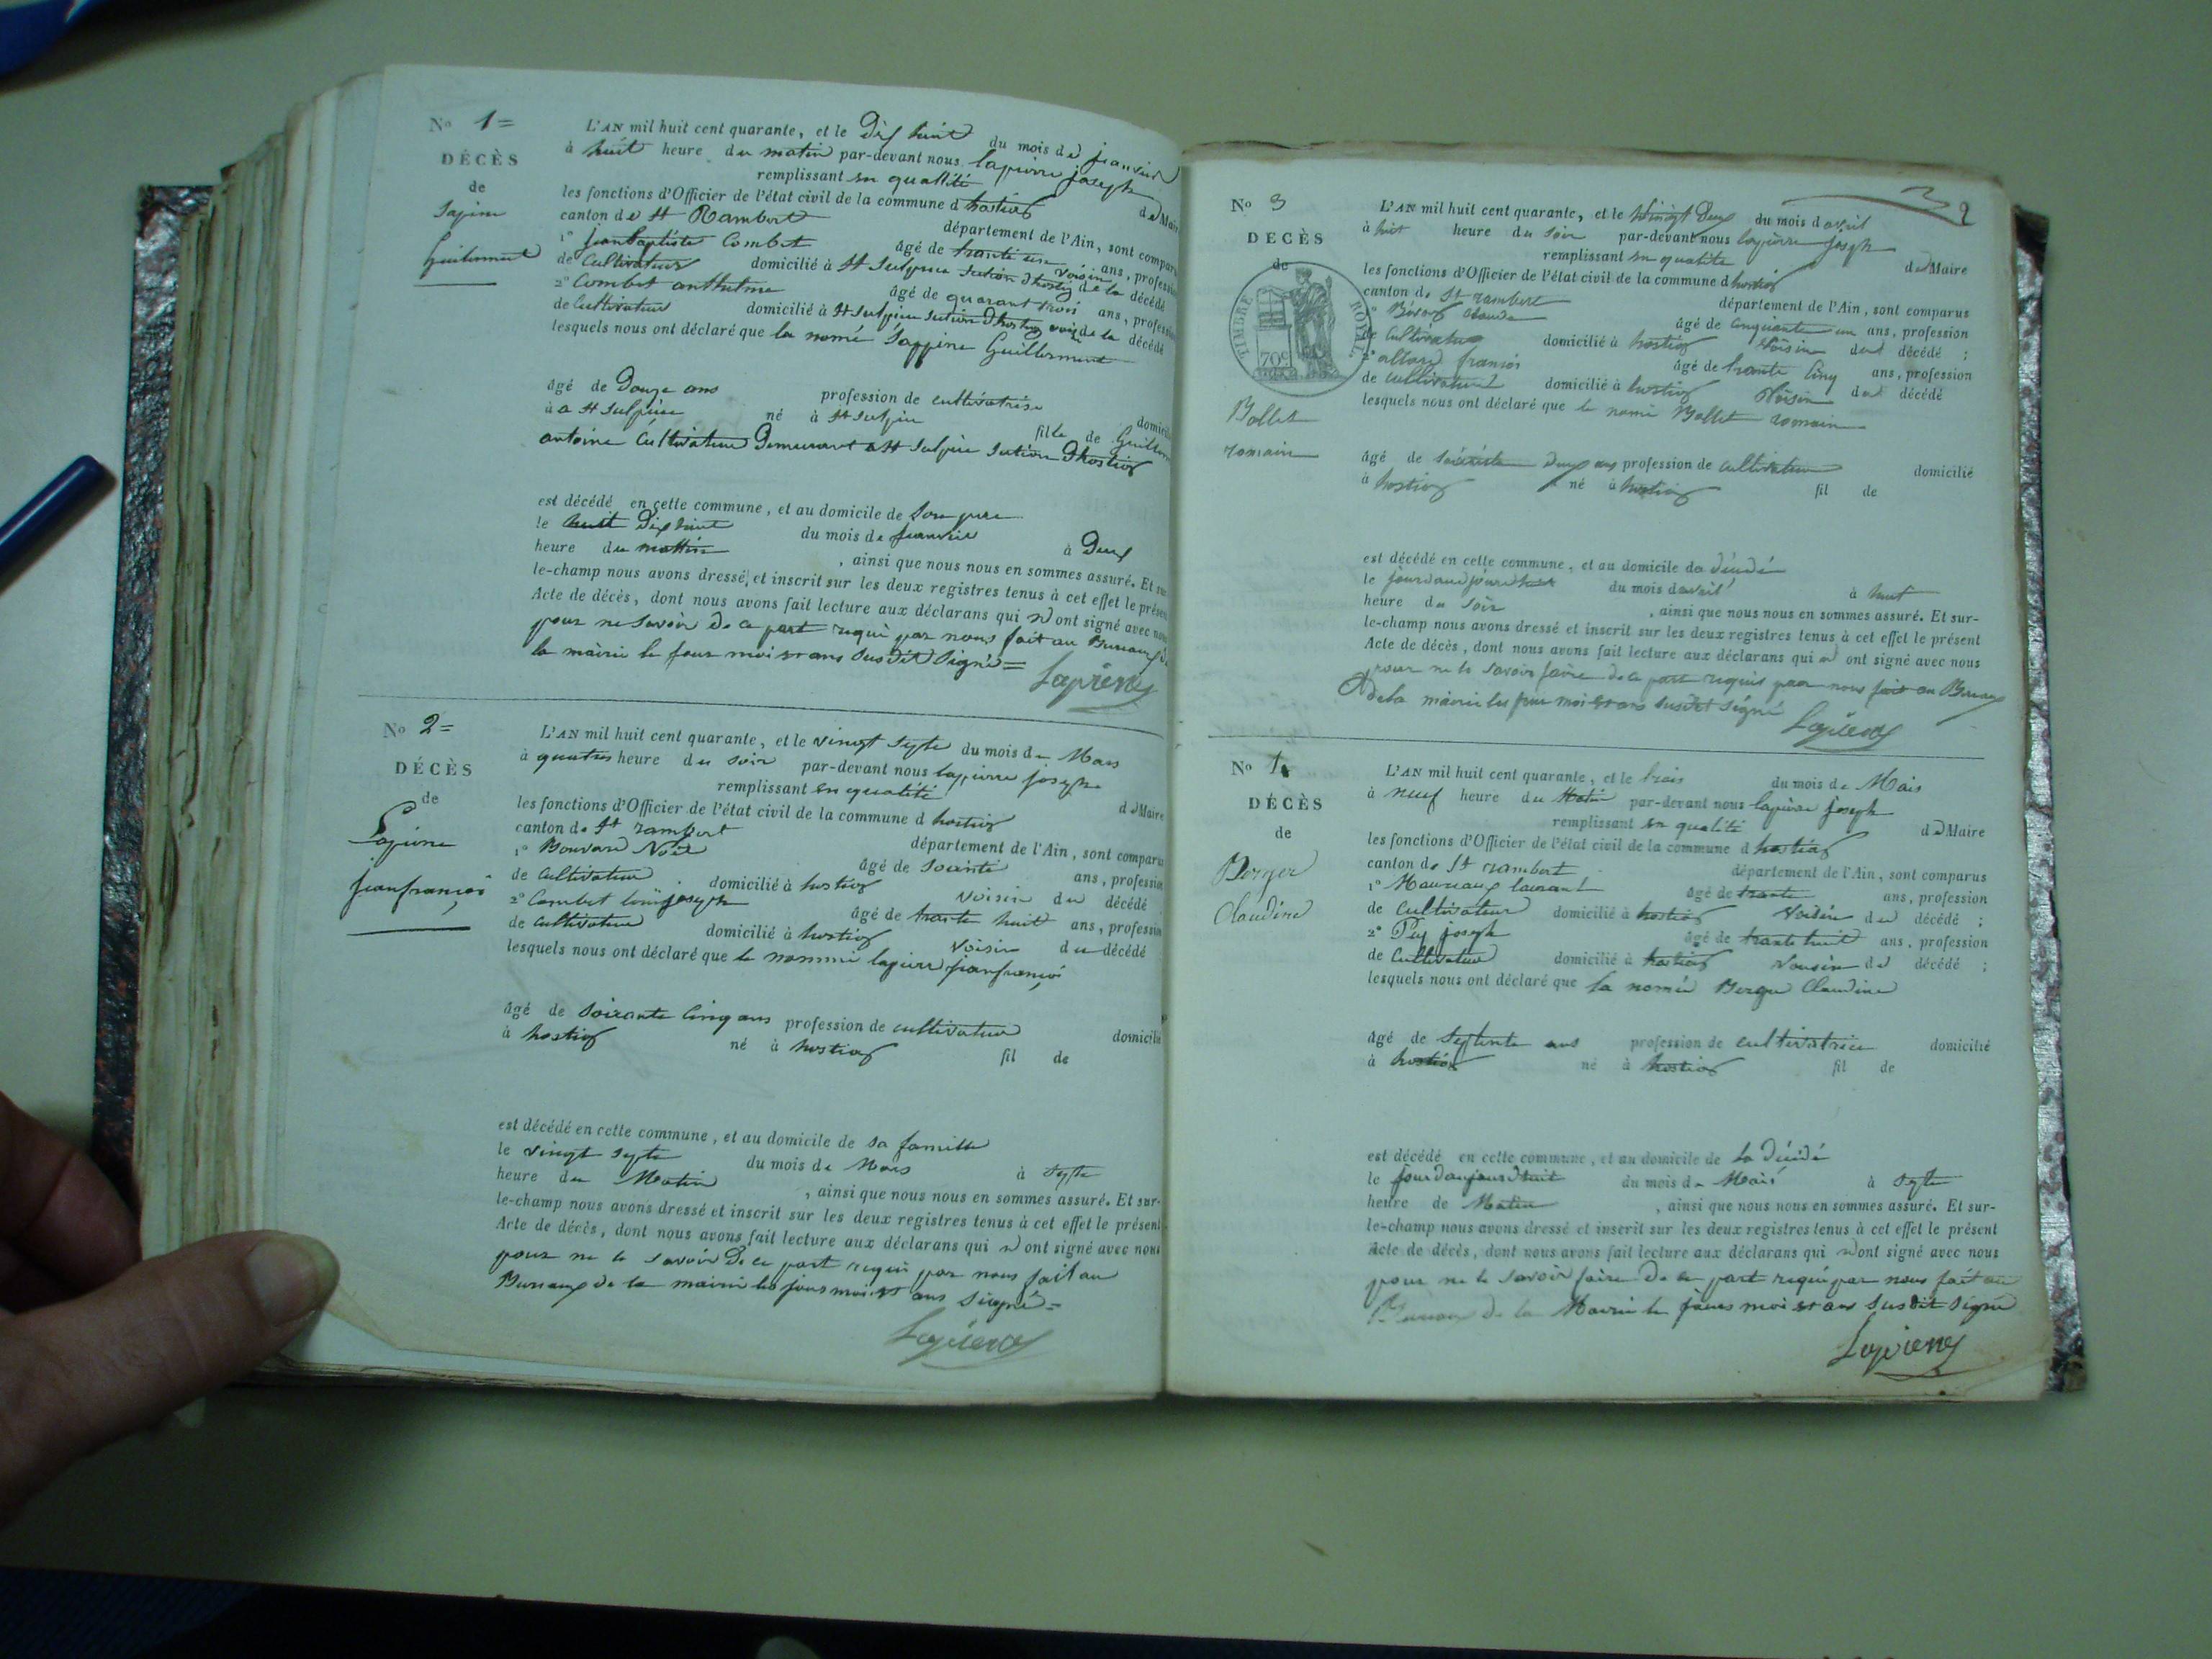 No 1=
DÉCÈS
de
Sapine
Guilermet
L'AN mil huit cent quarante, et le Dix huit du mois de janvier
à huit heure du matin par-devant nous lapierre joseph
remplissant en quallité de Maire
les fonctions d'Officier de l'état civil de la commune d hostias
canton de St Rambert département de l'Ain, sont compar
1° jeanbaptiste Combet âgé de trante un ans, profession
de Cultivateur domicilié à St Sulpice Section dhostiaz voisin de la décédé
2° Combet anthelme âgé de quarant trois ans, profession
de Cultivateur domicilié à St Sulpice Section dhostiaz voisin de la décédé
lesquels nous ont déclaré que la nomé Sappine Guillermet
âgé de Douze ans profession de cultivatrise domicilié
à a St Sulpice né à St Sulpice fille de Guillermet
antoine Cultivateur Demeurant a St Sulpice Section Dhostiaz
est décédé en cette commune, et au domicile de son pere
le huit Dix huit du mois de janvier à Deux
heure du mattin, ainsi que nous nous en sommes assuré. Et sur-
le-champ nous avons dressé et inscrit sur les deux registres tenus à cet effet le présent
Acte de décès, dont nous avons fait lecture aux déclarans qui n'ont signé avec nous
pour ne Savoir De ce part requi par nous fait au Bureaux de
la mairie le jour moi et ans susdit Signé=
Lapierre
No 2=
DÉCÈS
de
Lapierre
jeanfrançois
L'AN mil huit cent quarante, et le vingt septe du mois de Mars
à quatres heure du soir par-devant nous lapierre joseph
remplissant en qualité de Maire
les fonctions d'Officier de l'état civil de la commune d hostiaz
canton de St rambert département de l'Ain, sont comparus
1° Bouvard Noël âgé de soixante ans, profession
de Cultivateur domicilié à hostiaz voisin du décédé
2° Combet louis joseph âgé de trante huit ans, profession
de Cultivateur domicilié à hostiaz voisin du décédé
lesquels nous ont déclaré que le nommé lapierre jeanfrançois
âgé de soixante cinq ans profession de cultivateur domicilié
à hostiaz né à hostiaz fil de
est décédé en cette commune, et au domicile de sa famille
le vingt septe du mois de Mars à septe
heure du Matin, ainsi que nous nous en sommes assuré. Et sur-
le-champ nous avons dressé et inscrit sur les deux registres tenus à cet effet le présent
Acte de décès, dont nous avons fait lecture aux déclarans qui n'ont signé avec nous
pour ne le savoir De ce part requi par nous fait au
Bureaux de la mairie les jours moi et ans signé=
Lapierre
3 2
No 3
DECÈS
de
TIMBRE ROYAL
70c
Bollet
romain
L'AN mil huit cent quarante, et le Vingt Deux du mois d avril
à huit heure du soir par-devant nous lapierre joseph
remplissant en qualité de Maire
les fonctions d'Officier de l'état civil de la commune d hostiaz
canton de St rambert département de l'Ain, sont comparus
1° Claude âgé de cinquante un ans, profession
de Cultivateur domicilié à hostiaz Voisin du décédé ;
2° françois âgé de trante cinq ans, profession
de cultivateur domicilié à hostiaz Voisin du décédé
lesquels nous ont déclaré que le nomé Bollet romain
âgé de soixante Deux ans profession de cultivateur domicilié
à hostiaz né à hostiaz fil de
est décédé en cette commune, et au domicile du décédé
le jourdaujourdhuit du mois d avril à huit
heure du soir, ainsi que nous nous en sommes assuré. Et sur-
le-champ nous avons dressé et inscrit sur les deux registres tenus à cet effet le présent
Acte de décès, dont nous avons fait lecture aux déclarans qui n'ont signé avec nous
pour ne le savoir faire de ce part requis par nous fait au Bureaux
de la mairie les jour moi et ans susdit signé
Lapierre
No 4
DÉCÈS
de
Berger
Claudine
L'AN mil huit cent quarante, et le trois du mois de Mais
à neuf heure du Matin par-devant nous lapierre joseph
remplissant en qualité de Maire
les fonctions d'Officier de l'état civil de la commune d hostiaz
canton de St rambert département de l'Ain, sont comparus
1° laurant âgé de trante ans, profession
de Cultivateur domicilié à hostiaz Voisin du décédé ;
2° joseph âgé de trante huit ans, profession
de Cultivateur domicilié à hostiaz Vousin de décédé ;
lesquels nous ont déclaré que la nomée Berger Claudine
âgé de Septente ans profession de cultivatrice domicilié
à hostiaz né à hostiaz fil de
est décédé en cette commune, et au domicile de la décédé
le jourdaujourdhuit du mois de Mais à septe
heure de Matin, ainsi que nous nous en sommes assuré. Et sur-
le-champ nous avons dressé et inscrit sur les deux registres tenus à cet effet le présent
Acte de décès, dont nous avons fait lecture aux déclarans qui n'ont signé avec nous
pour ne le savoir faire De ce part requi par nous fait au
Bureaux de la Mairie le jours moi et ans susdit signé
Lapierre